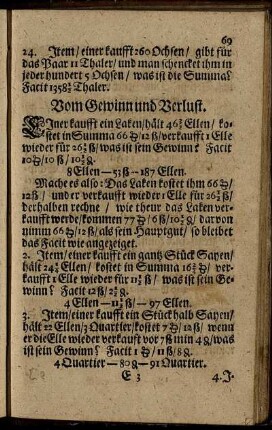 69
24. Item/ einer kaufft 260 Ochsen/ gibt für
das Paar 11 Thaler/ und man schencket ihm in
jeder hundert 5 Ochsen/ was ist die Summa?
Facit Thaler.
Vom Gewinn und Verlust.
Einer kaufft ein Laken/ hält Ellen/ ko-
stet in Summa 66 12 ß/ verkaufft 1 Elle
wieder für ß/ was ist sein Gewinn? Facit
10 10 ß/
8 Ellen — 187 Ellen.
Mache es also: Das Laken kostet ihm 66
12 ß/ und er verkaufft wieder 1 Elle für ß/
derhalben rechne/ wie theur das Laken ver-
kaufft werde/ kommen 77 6 ß/ davon
nimm 66 12 ß/ als sein Hauptgut/ so bleibet
das Facit wie angezeiget.
2. Item/ einer kaufft ein gantz Stück Sayen/
hält Ellen/ kostet in Summa ver-
kaufft 1 Elle wieder für ß/ was ist sein Ge-
winn? Facit 12 ß/
4 Ellen — — 97 Ellen.
3. Item/ einer kaufft ein Stück halb Sayen/
hält 22 Ellen/ 3 Quartier/ kostet 7 12 ß/ wenn
er die Elle wieder verkaufft vor 7 ß min 4 was
ist sein Gewinn? Facit 1 11 ß/ 8
4 Quartier — 80 — 91 Quartier.
E 3
4. J.